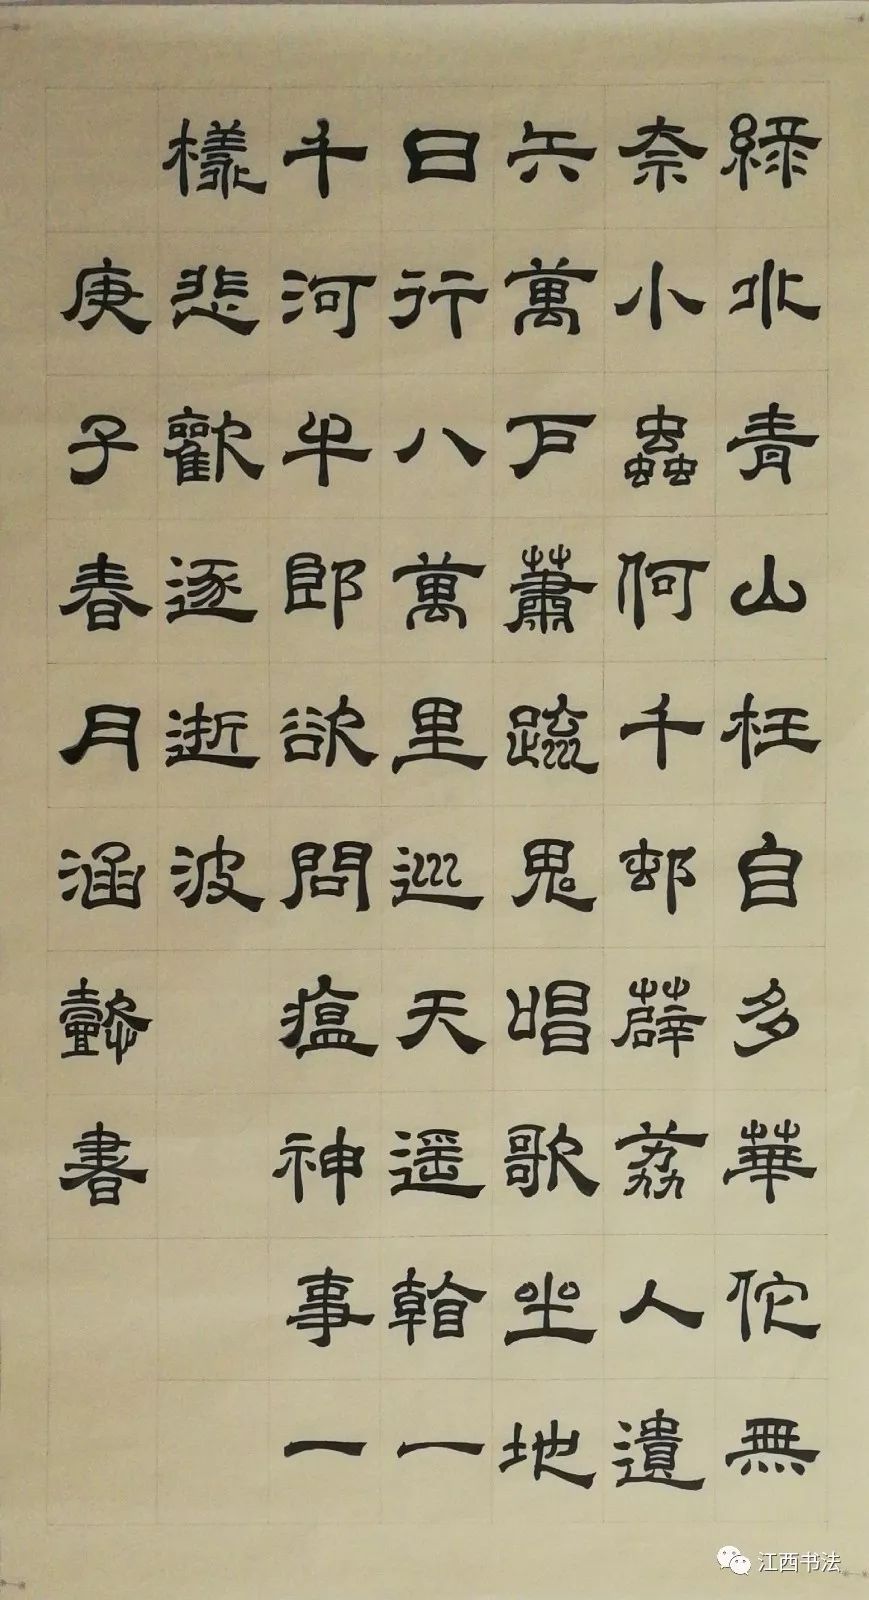 緑水青山枉自多華佗無
奈小蟲何千邨薜荔人遺
矢萬戶蕭疏鬼唱歌坐地
日行八萬里巡天遥看一
千河牛郎欲問瘟神事一
樣悲歡逐逝波
庚子春月涵懿書
江西书法